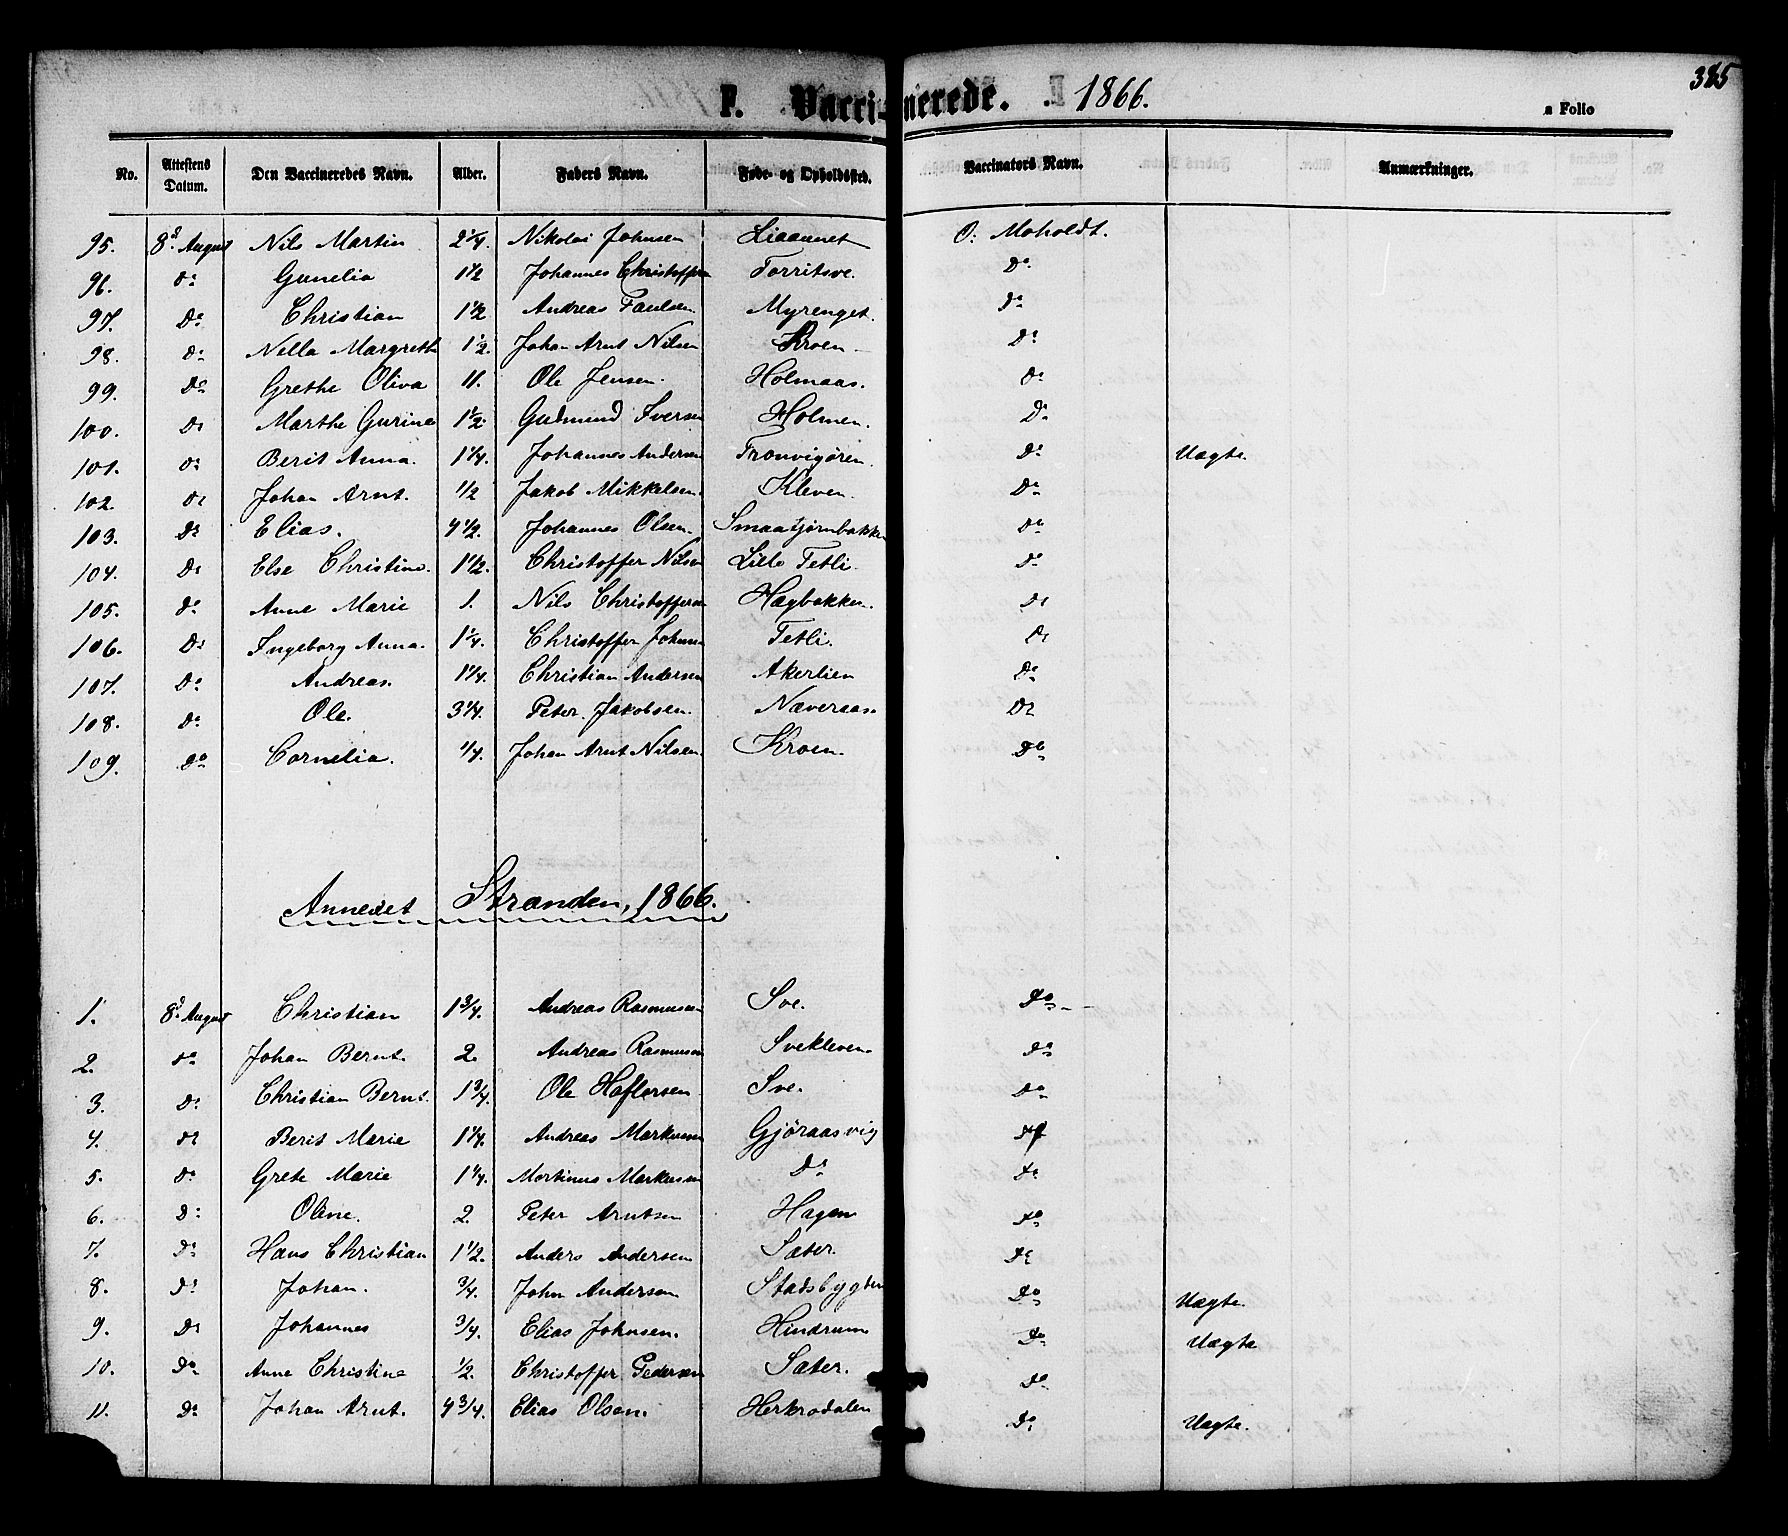 385
F. Vaccinerede. 1866.
a Folio
No. Attestens Datum. Den Vaccineredes Navn. Alder. Faders Navn. Føde- og Opholdssted. Vaccinators Navn. Anmærkninger.
95. 8d August Nils Martin 2 1/4. Nikolai Johnsen Liaaunet O: Moholdt.
96. Do Gunelia 1 1/2 Johannes Christoffersen Torritsve. Do
97. Do Christian 1 1/2 Andreas Paulsen Myrenget. Do
98. Do Nella Margreth 1 1/2. Johan Arnt Nilsen Kroen Do
99. Do Grethe Oliva 11. Ole Jensen. Holmaas. Do
100. Do Marthe Gurine 1 1/2. Gudmund Iversen Holmen. Do
101. Do Berit Anna. 1 1/4. Johannes Andersen Tronvigøren. Do Uægte.
102. Do Johan Arnt. 1/2 Jakob Mikkelsen. Kleven. Do
103. Do Elias. 4 1/2. Johannes Olsen. Smaatjørnbakken Do
104. Do Else Christine. 1 1/2. Christoffer Nilsen Lille Tetli. Do
105. Do Anne Marie 1. Nils Christoffersen Hægbakken. Do
106. Do Ingeborg Anna. 1 1/4. Christoffer Johnsen Tetli. Do
107. Do Andreas. 1 1/4. Christian Andersen Akerlien Do
108. Do Ole. 3 1/4. Peter Jakobsen. Næveraas Do
109. Do Cornelia. 1/4. Johan Arnt Nilsen. Kroen. Do
Annexet Stranden, 1866.
1. 8d August Christian 1 3/4. Andreas Rasmussen Sve. Do
2. Do Johan Bernt. 2. Andreas Rasmussen Svekleven Do
3. Do Christian Bernt. 1 3/4. Ole Haflorsen Sve. Do
4. Do Berit Marie 1 1/4. Andreas Markussen Gjøraasvig Do
5. Do Grete Marie 1 1/4. Mortinus Markussen Do Do
6. Do Oline. 2. Peter Arntsen Hagen Do
7. Do Hans Christian 1 1/2. Anders Andersen Sæter. Do
8. Do Johan. 3/4. John Andersen Stadsbygden Do Uægte.
9. Do Johannes 3/4. Elias Johnsen. Hindrum Do Uægte
10. Do Anne Christine 1/2. Christoffer Pedersen Sæter. Do
11. Do Johan Arnt. 4 3/4. Elias Olsen. Herkrodalen Do Uægte.